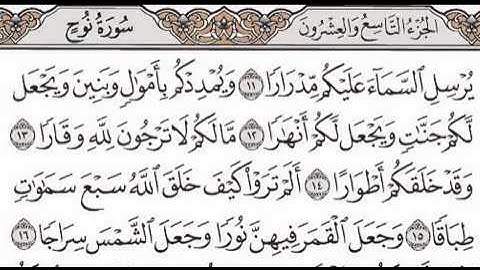 الجزء التاسع والعشرون سورة نوح
يُرْسِلِ ٱلسَّمَآءَ عَلَيْكُم مِّدْرَارًا ١١ وَيُمْدِدْكُم بِأَمْوَٰلٍ وَبَنِينَ وَيَجْعَل
لَّكُمْ جَنَّٰتٍ وَيَجْعَل لَّكُمْ أَنْهَٰرًا ١٢ مَّا لَكُمْ لَا تَرْجُونَ لِلَّهِ وَقَارًا ١٣
وَقَدْ خَلَقَكُمْ أَطْوَارًا ١٤ أَلَمْ تَرَوْا۟ كَيْفَ خَلَقَ ٱللَّهُ سَبْعَ سَمَٰوَٰتٍ
طِبَاقًا ١٥ وَجَعَلَ ٱلْقَمَرَ فِيهِنَّ نُورًا وَجَعَلَ ٱلشَّمْسَ سِرَاجًا ١٦